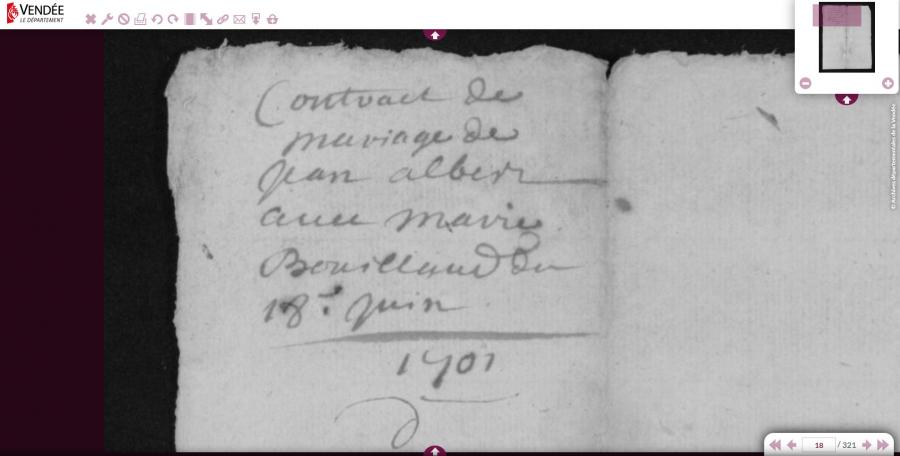 VENDÉE
LE DÉPARTEMENT
Contract de
mariage de
jean albert
auec marie
Bouillaud du
18.e juin
1701
© Archives départementales de la Vendée
18 / 321